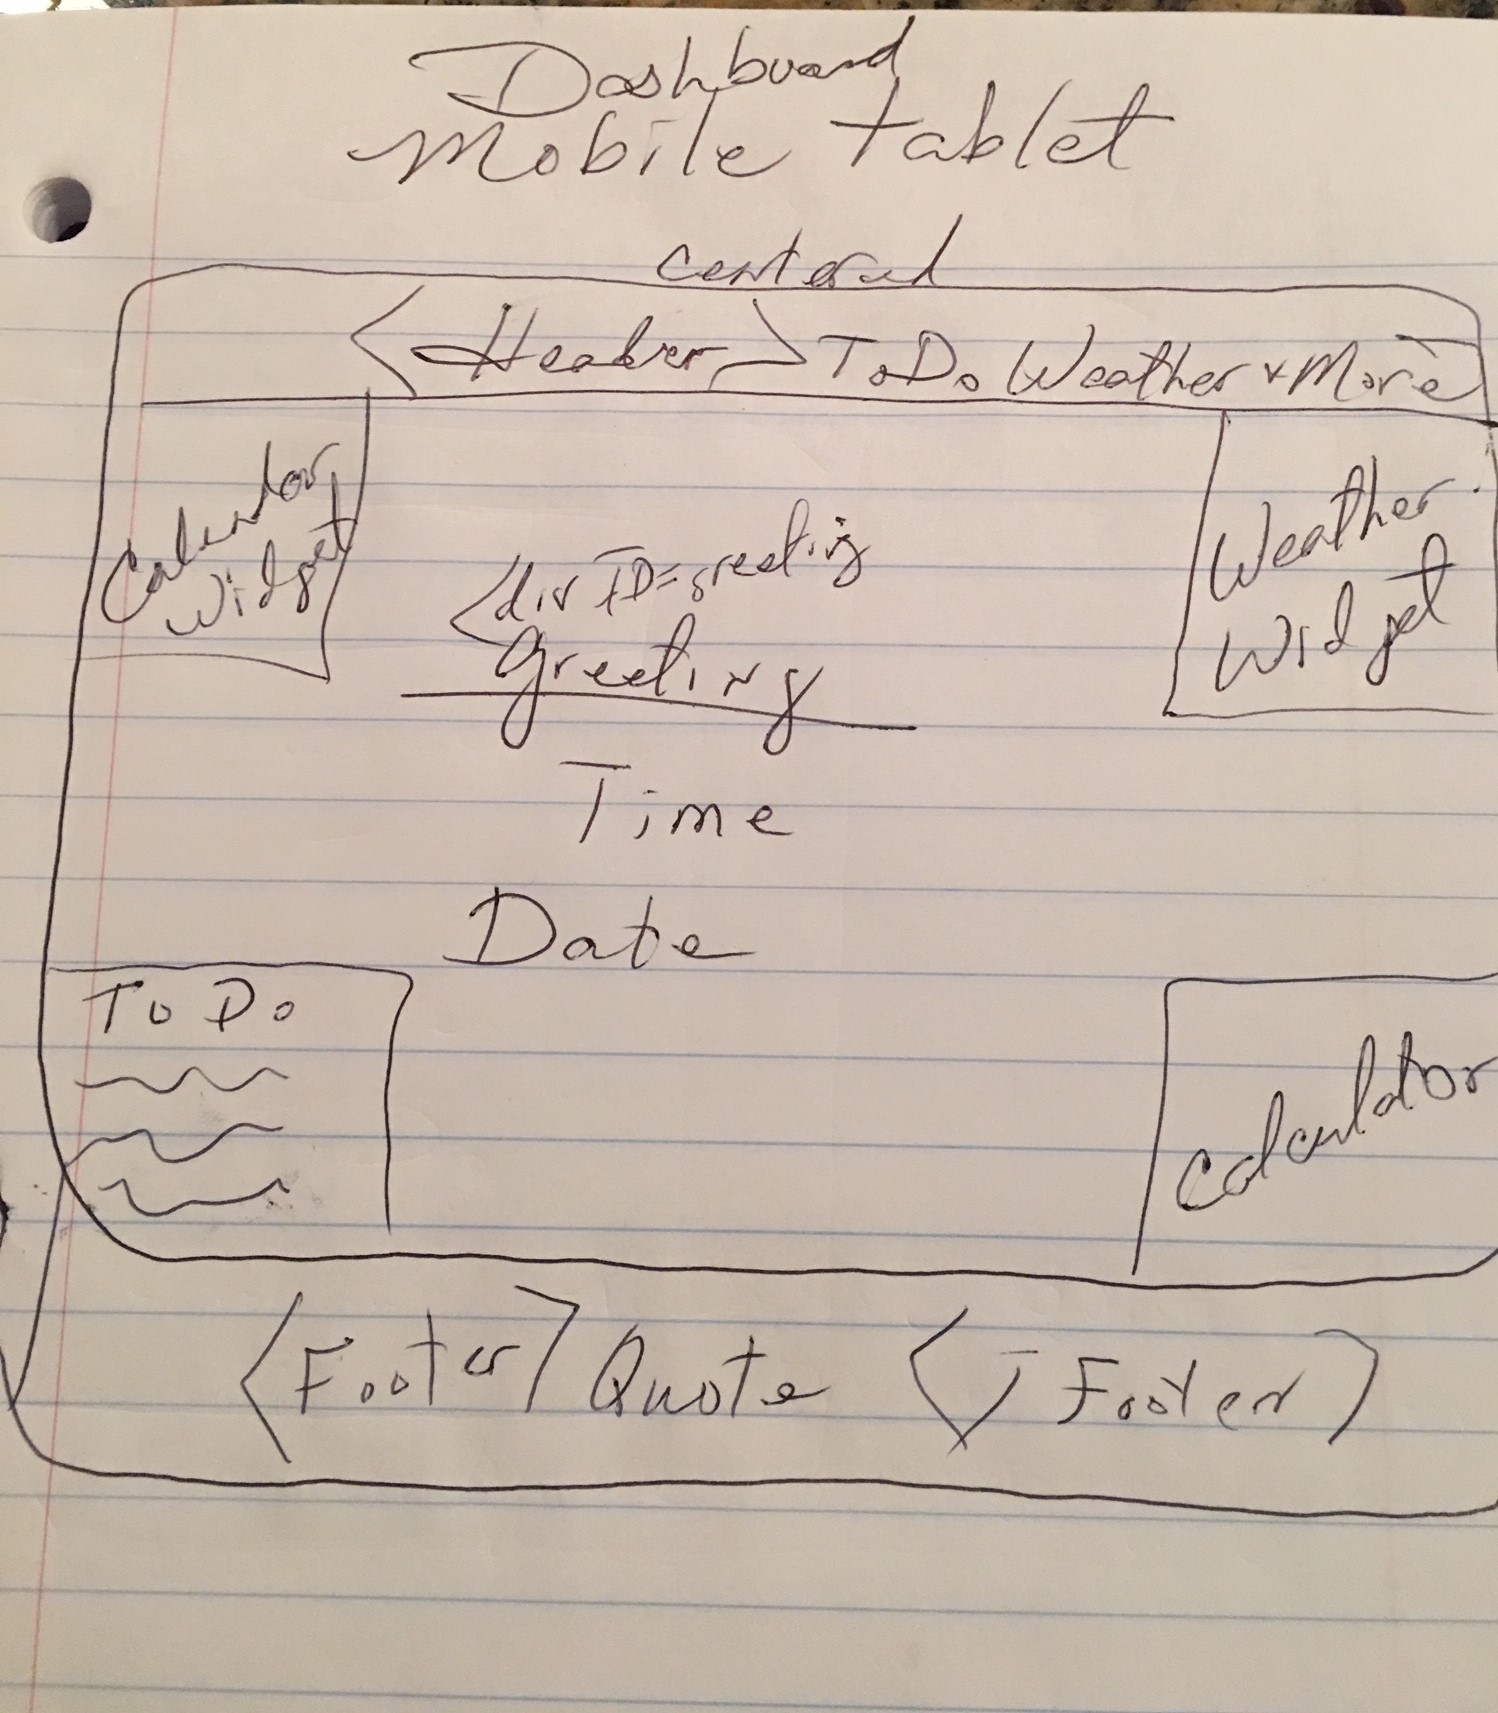 Dashboard
Mobile tablet
centered
<Header> ToDo Weather + More
Calendar
Widget
Weather
Widget
<div ID=greeting
Greeting
Time
Date
To Do
Calculator
<Footer> Quote </Footer>